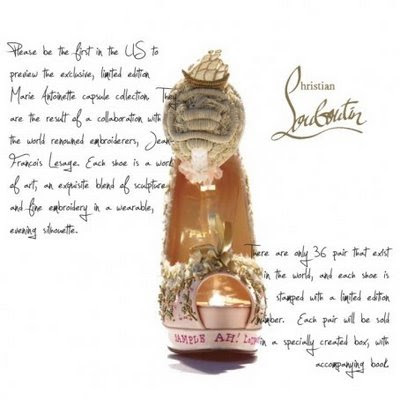 Please be the first in the US to
preview the exclusive, limited edition
Marie Antoinette capsule collection. They
are the result of a collaboration with
the world renowned embroiderers, Jean-
François Lesage. Each shoe is a work
of art; an exquisite blend of sculpture
and fine embroidery in a wearable,
evening silhouette.
Christian
Louboutin
There are only 36 pair that exist
in the world, and each shoe is
stamped with a limited edition
number. Each pair will be sold
in a specially created box, with
accompanying book.
SAMPLE AH!